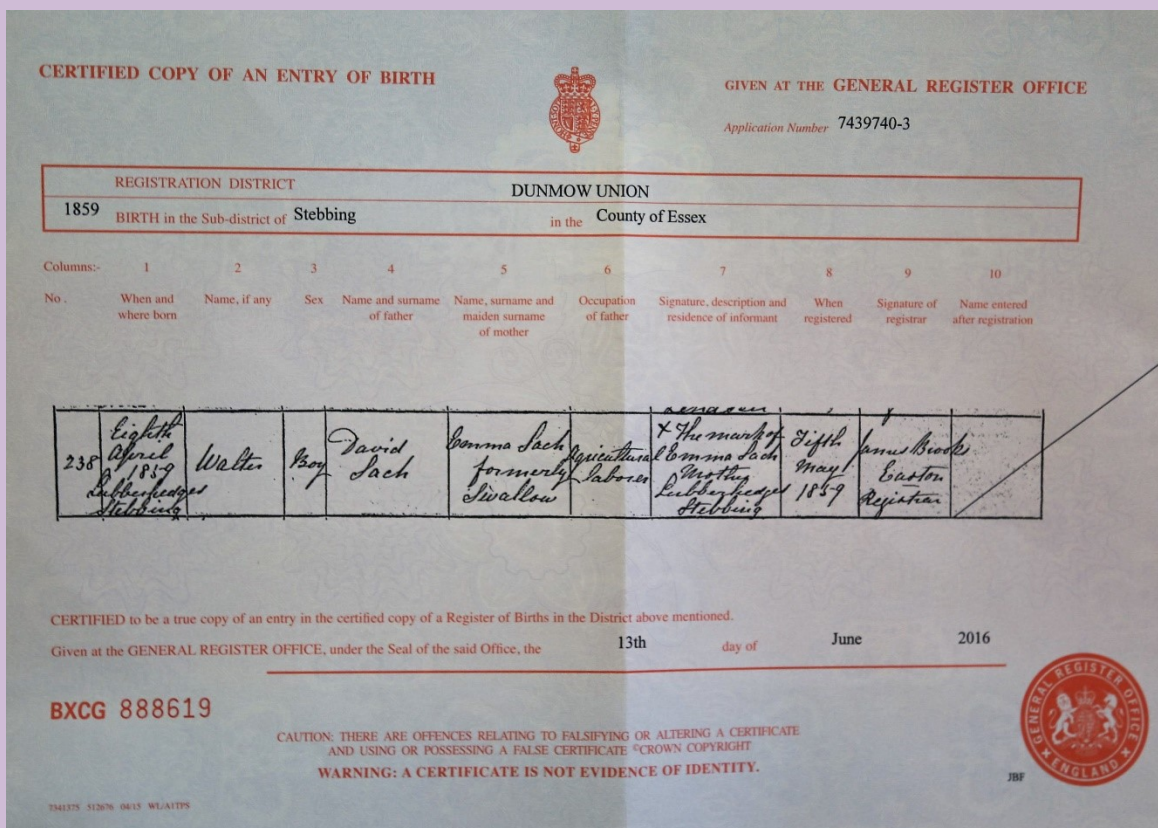 CERTIFIED COPY OF AN ENTRY OF BIRTH
GIVEN AT THE GENERAL REGISTER OFFICE
Application Number 7439740-3
REGISTRATION DISTRICT DUNMOW UNION
1859 BIRTH in the Sub-district of Stebbing in the County of Essex
Columns:- 1 2 3 4 5 6 7 8 9 10
No. When and where born Name, if any Sex Name and surname of father Name, surname and maiden surname of mother Occupation of father Signature, description and residence of informant When registered Signature of registrar Name entered after registration
238
Eighth
April
1859
Lubberhedges
Stebbing
Walter
Boy
David
Sach
Emma Sach
formerly
Swallow
Agricultural
laborer
X The mark of
Emma Sach
Mother
Lubberhedges
Stebbing
Fifth
May
1859
James Brook
Easton
Registrar
CERTIFIED to be a true copy of an entry in the certified copy of a Register of Births in the District above mentioned.
Given at the GENERAL REGISTER OFFICE, under the Seal of the said Office, the 13th day of June 2016
BXCG 888619
CAUTION: THERE ARE OFFENCES RELATING TO FALSIFYING OR ALTERING A CERTIFICATE
AND USING OR POSSESSING A FALSE CERTIFICATE ©CROWN COPYRIGHT
WARNING: A CERTIFICATE IS NOT EVIDENCE OF IDENTITY.
GENERAL REGISTER OFFICE
ENGLAND
JBF
7341375 512676 04/15 WL/A1TPS